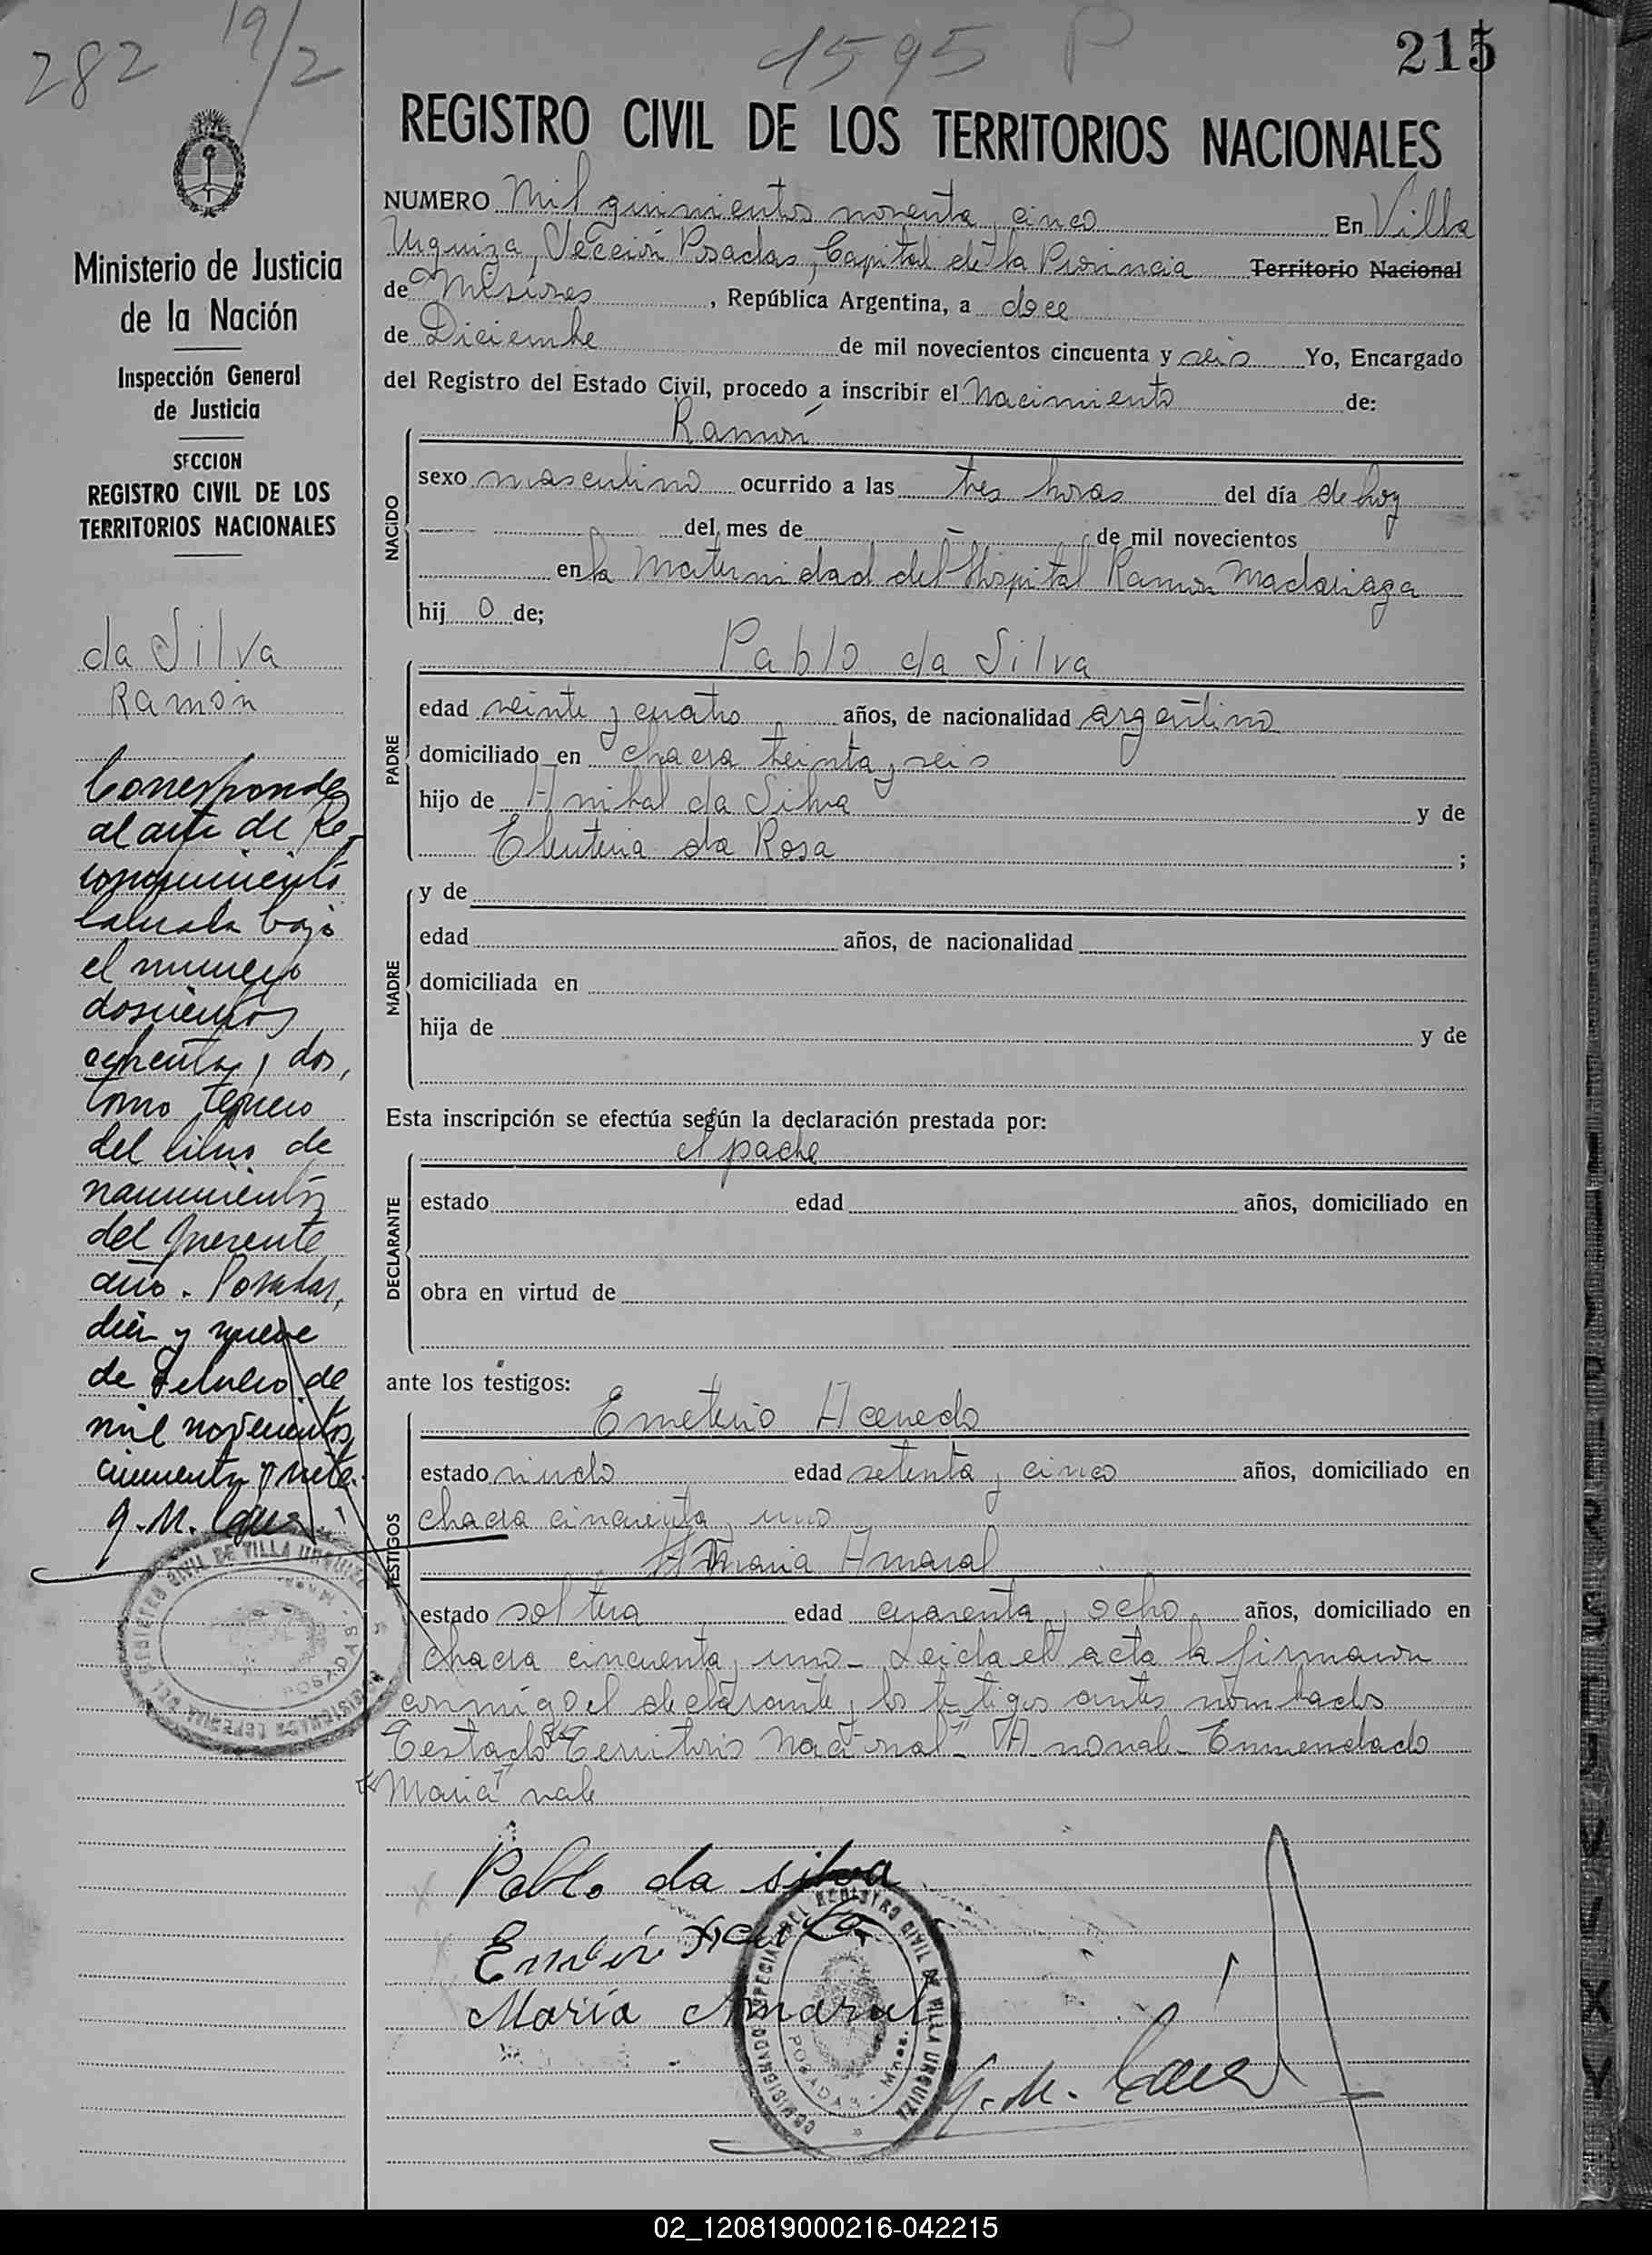 282 19/2
1595 P
215
REGISTRO CIVIL DE LOS TERRITORIOS NACIONALES
Ministerio de Justicia
de la Nación
Inspección General
de Justicia
SECCION
REGISTRO CIVIL DE LOS
TERRITORIOS NACIONALES
da Silva
Ramón
Corresponde
al acta de Re-
conocimiento
labrada bajo
el numero
doscientos
ochenta y dos,
tomo tercero
del libro de
nacimientos
del presente
año. Posadas,
diez y nueve
de Febrero de
mil novecientos
cincuenta y siete.
NUMERO Mil quinientos noventa y cinco En Villa
Urquiza, Sección Posadas, Capital de la Provincia Territorio Nacional
de Misiones, República Argentina, a doce
de Diciembre de mil novecientos cincuenta y seis Yo, Encargado
del Registro del Estado Civil, procedo a inscribir el Nacimiento de:
NACIDO
Ramón
sexo masculino ocurrido a las tres horas del día de hoy
del mes de - de mil novecientos
en la Maternidad del Hospital Ramon Madariaga
hij o de;
PADRE
Pablo da Silva
edad veinte y cuatro años, de nacionalidad argentino
domiciliado en chacra treinta y seis
hijo de Anibal da Silva y de
Eleuteria da Rosa ;
MADRE
y de
edad años, de nacionalidad
domiciliada en
hija de y de
Esta inscripción se efectúa según la declaración prestada por:
DECLARANTE
el padre
estado edad años, domiciliado en
obra en virtud de
ante los testigos:
TESTIGOS
Emeterio Acevedo
estado viudo edad setenta y cinco años, domiciliado en
chacra cincuenta y uno
A Maria Amaral
estado soltera edad cuarenta y ocho años, domiciliado en
chacra cincuenta y uno - Leida el acta la firmaron
conmigo el declarante y los testigos antes nombrados
Testado "Territorio Nacional" "A" no vale - Enmendado
"Maria" vale
Pablo da silva
María Amaral
COMISIONADO ESPECIAL DEL REGISTRO CIVIL DE VILLA URQUIZA
POSADAS - Mnes.
02_120819000216-042215